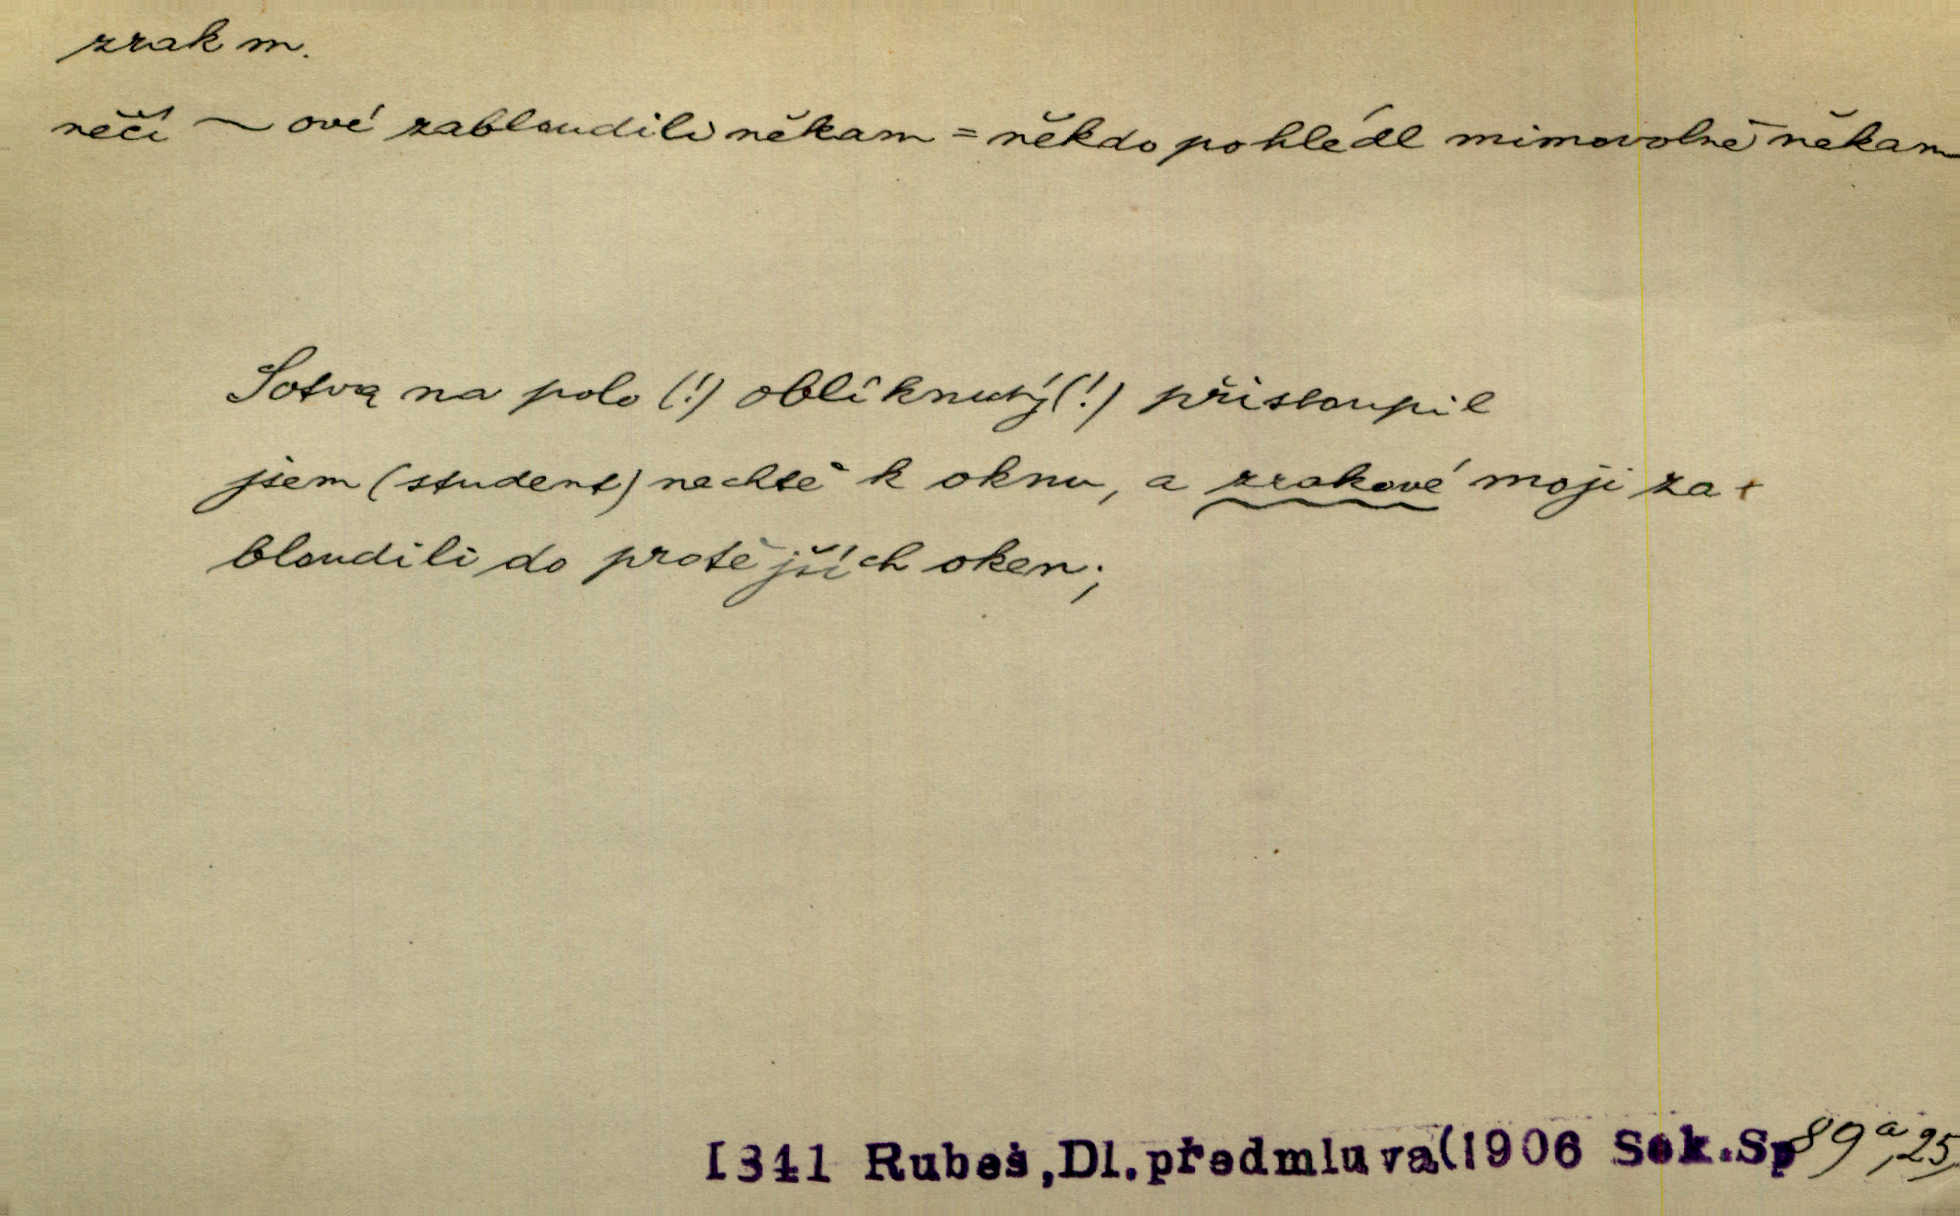 zrak m.
něčí ~ ové zabloudili někam = někdo pohlédl mimovolně někam
Sotva na polo (!) oblíknutý (!) přistoupil
jsem (student) nechtě k oknu, a zrakové moji za-
bloudili do protějších oken;
1341 Rubeš, Dl. předmluva (1906 Sek. Sp 89a, 25,